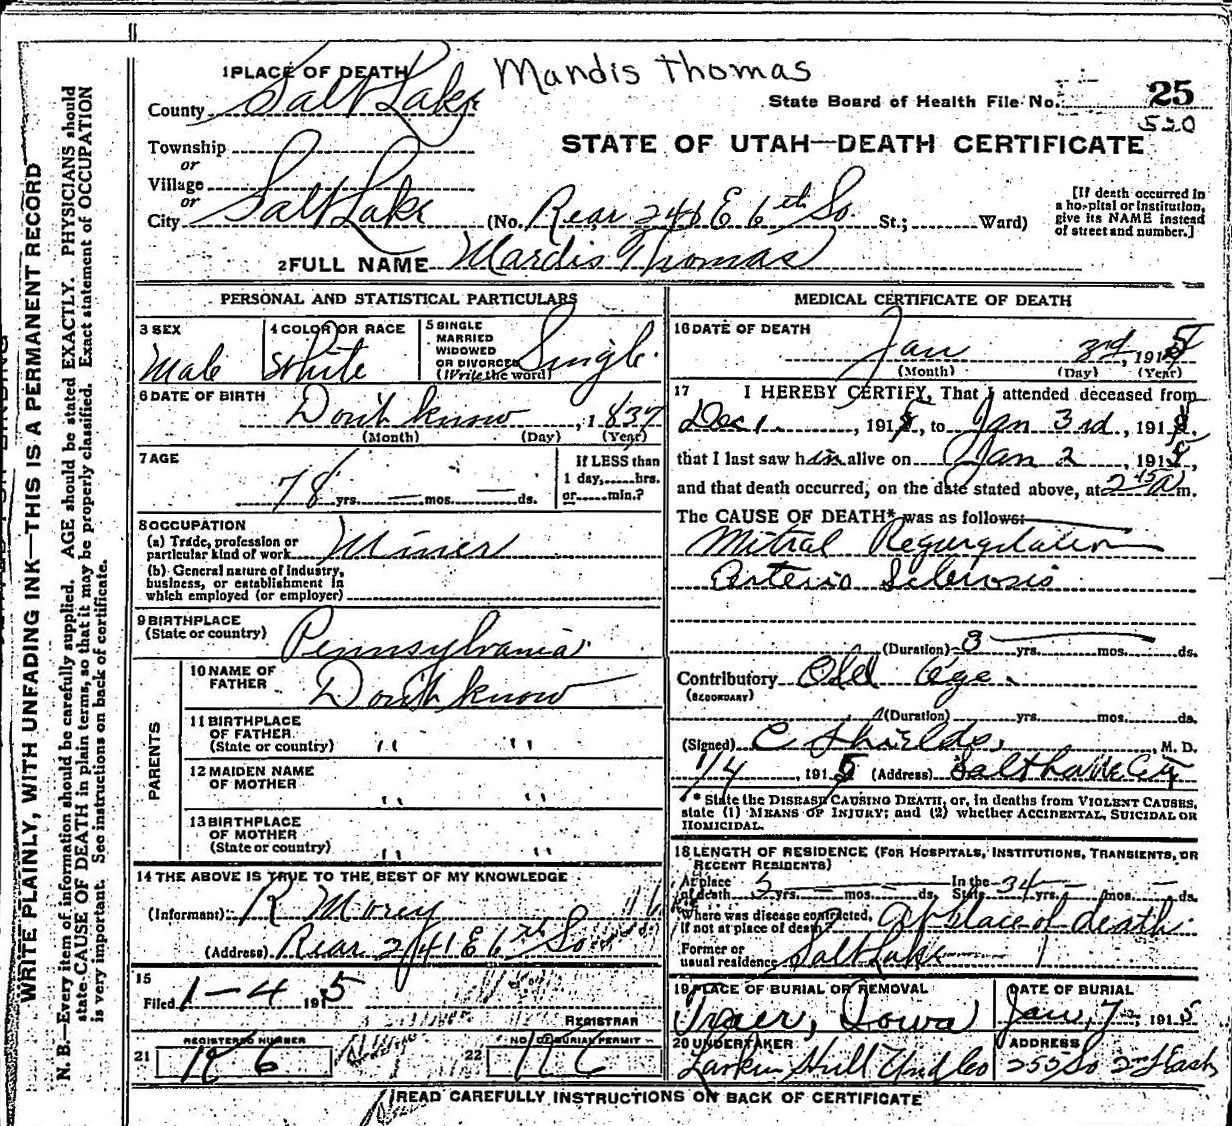 Mandis Thomas
1 PLACE OF DEATH
County Salt Lake
State Board of Health File No. 25
520
STATE OF UTAH—DEATH CERTIFICATE
Township
or
Village
or
City Salt Lake (No. Rear 241 E 6th So. St.; Ward)
[If death occurred in
a hospital or institution,
give its NAME instead
of street and number.]
2 FULL NAME Mardis Thomas
PERSONAL AND STATISTICAL PARTICULARS
3 SEX
Male
4 COLOR OR RACE
White
5 SINGLE
MARRIED
WIDOWED
OR DIVORCED
(Write the word)
Single
6 DATE OF BIRTH
Don't know, 1837
(Month) (Day) (Year)
7 AGE
78 yrs. — mos. — ds.
If LESS than
1 day, hrs.
or min.?
8 OCCUPATION
(a) Trade, profession or
particular kind of work Miner
(b) General nature of industry,
business, or establishment in
which employed (or employer)
9 BIRTHPLACE
(State or country) Pennsylvania
PARENTS
10 NAME OF
FATHER Don't know
11 BIRTHPLACE
OF FATHER
(State or country) " "
12 MAIDEN NAME
OF MOTHER " "
13 BIRTHPLACE
OF MOTHER
(State or country) " "
14 THE ABOVE IS TRUE TO THE BEST OF MY KNOWLEDGE
(Informant) R Morey
(Address) Rear 241 E 6th So
15
Filed 1-4 1915
REGISTRAR
21 REGISTERED NUMBER
22 NO. OF BURIAL PERMIT
MEDICAL CERTIFICATE OF DEATH
16 DATE OF DEATH
Jan 3rd, 1915
(Month) (Day) (Year)
17 I HEREBY CERTIFY, That I attended deceased from
Dec 1, 191 , to Jan 3rd, 191 .
that I last saw him alive on Jan 2, 191 ,
and that death occurred, on the date stated above, at 2 45 a m.
The CAUSE OF DEATH* was as follows:
Mitral Regurgitation
Arterio Sclerosis
(Duration) 3 yrs. mos. ds.
Contributory Old Age.
(SECONDARY)
(Duration) yrs. mos. ds.
(Signed) C Shields, M. D.
1/4, 1915 (Address) Salt Lake City
* State the DISEASE CAUSING DEATH, or, in deaths from VIOLENT CAUSES,
state (1) MEANS OF INJURY; and (2) whether ACCIDENTAL, SUICIDAL OR
HOMICIDAL.
18 LENGTH OF RESIDENCE (FOR HOSPITALS, INSTITUTIONS, TRANSIENTS, OR
RECENT RESIDENTS)
At place
of death 5 yrs. — mos. ds. In the State 34 yrs. — mos. — ds.
Where was disease contracted,
If not at place of death? At place of death
Former or
usual residence Salt Lake
19 PLACE OF BURIAL OR REMOVAL
Traer, Iowa
DATE OF BURIAL
Jan, 7, 1915
20 UNDERTAKER
Larkin Hull Und Co
ADDRESS
255 So 2nd East
READ CAREFULLY INSTRUCTIONS ON BACK OF CERTIFICATE
WRITE PLAINLY, WITH UNFADING INK—THIS IS A PERMANENT RECORD
N. B.—Every item of information should be carefully supplied. AGE should be stated EXACTLY. PHYSICIANS should
state CAUSE OF DEATH in plain terms, so that it may be properly classified. Exact statement of OCCUPATION
is very important. See instructions on back of certificate.